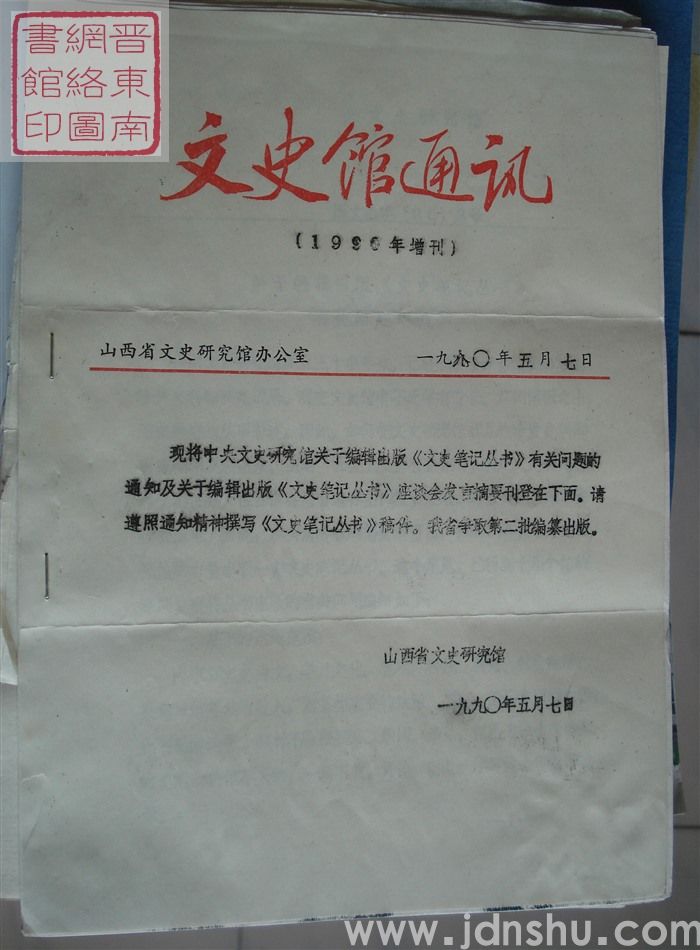 晋東南
網絡圖
書館印
文史馆通讯
(1990年增刊)
山西省文史研究馆办公室 一九九〇年五月七日
现将中央文史研究馆关于编辑出版《文史笔记丛书》有关问题的
通知及关于编辑出版《文史笔记丛书》座谈会发言摘要刊登在下面。请
遵照通知精神撰写《文史笔记丛书》稿件。我省争取第二批编纂出版。
山西省文史研究馆
一九九〇年五月七日
www.jdnshu.com